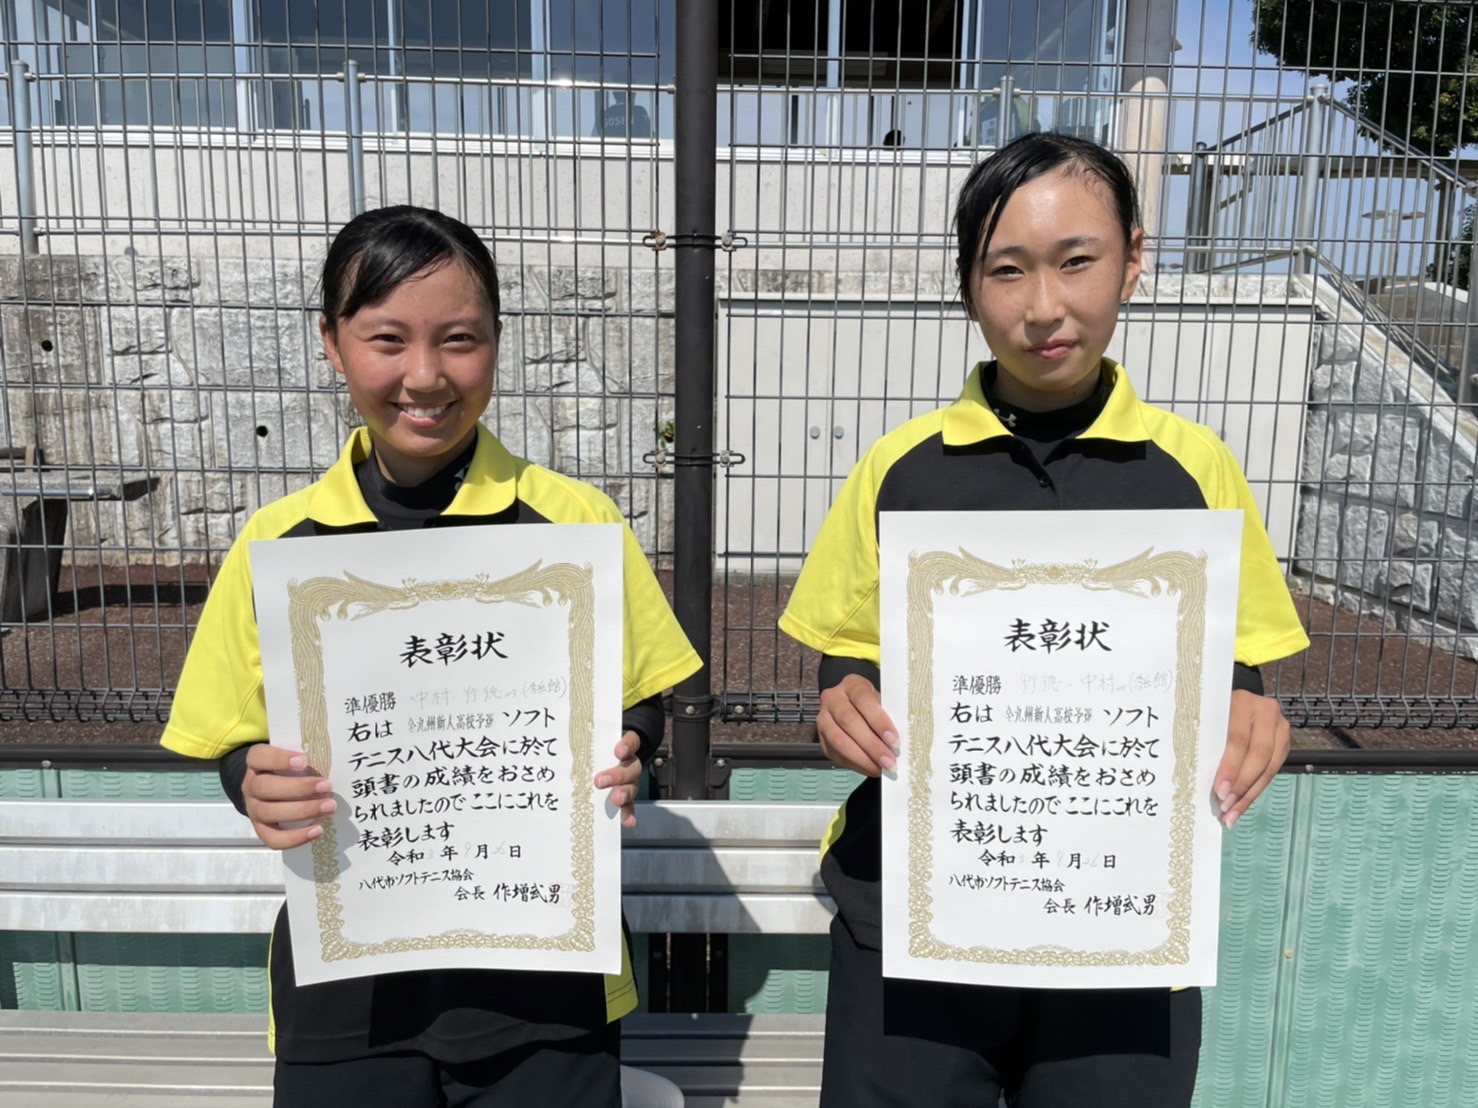 表彰状
準優勝 中村・行徳
右は 全九州新人高校予選 ソフト
テニス八代大会に於て
頭書の成績をおさめ
られましたのでここにこれを
表彰します
令和3年9月26日
八代市ソフトテニス協会
会長 作増武男
表彰状
準優勝 行徳・中村
右は 全九州新人高校予選 ソフト
テニス八代大会に於て
頭書の成績をおさめ
られましたのでここにこれを
表彰します
令和3年9月26日
八代市ソフトテニス協会
会長 作増武男